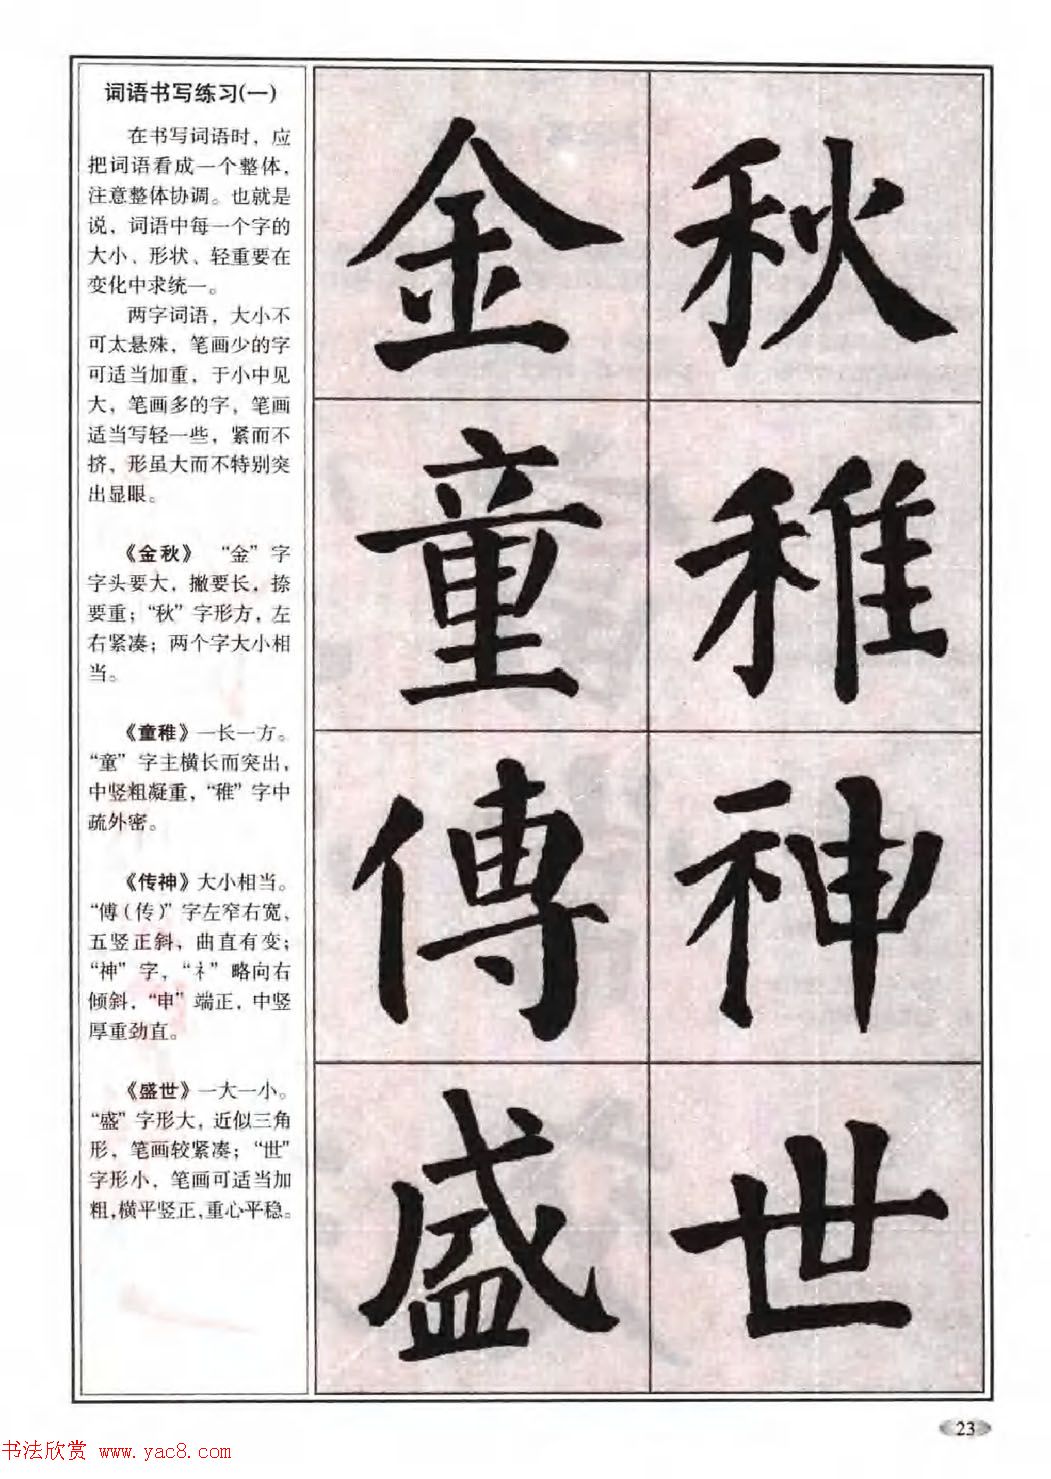 词语书写练习(一)
在书写词语时，应
把词语看成一个整体，
注意整体协调。也就是
说，词语中每一个字的
大小、形状、轻重要在
变化中求统一。
两字词语，大小不
可太悬殊，笔画少的字
可适当加重，于小中见
大，笔画多的字，笔画
适当写轻一些，紧而不
挤，形虽大而不特别突
出显眼。
《金秋》 “金”字
字头要大，撇要长，捺
要重；“秋”字形方，左
右紧凑；两个字大小相
当。
《童稚》一长一方。
“童”字主横长而突出，
中竖粗凝重，“稚”字中
疏外密。
《传神》大小相当。
“傅（传）”字左窄右宽、
五竖正斜，曲直有变；
“神”字，“礻”略向右
倾斜，“申”端正，中竖
厚重劲直。
《盛世》一大一小。
“盛”字形大，近似三角
形，笔画较紧凑；“世”
字形小，笔画可适当加
粗，横平竖正，重心平稳。
金秋
童稚
傳神
盛世
23
书法欣赏 www.yac8.com